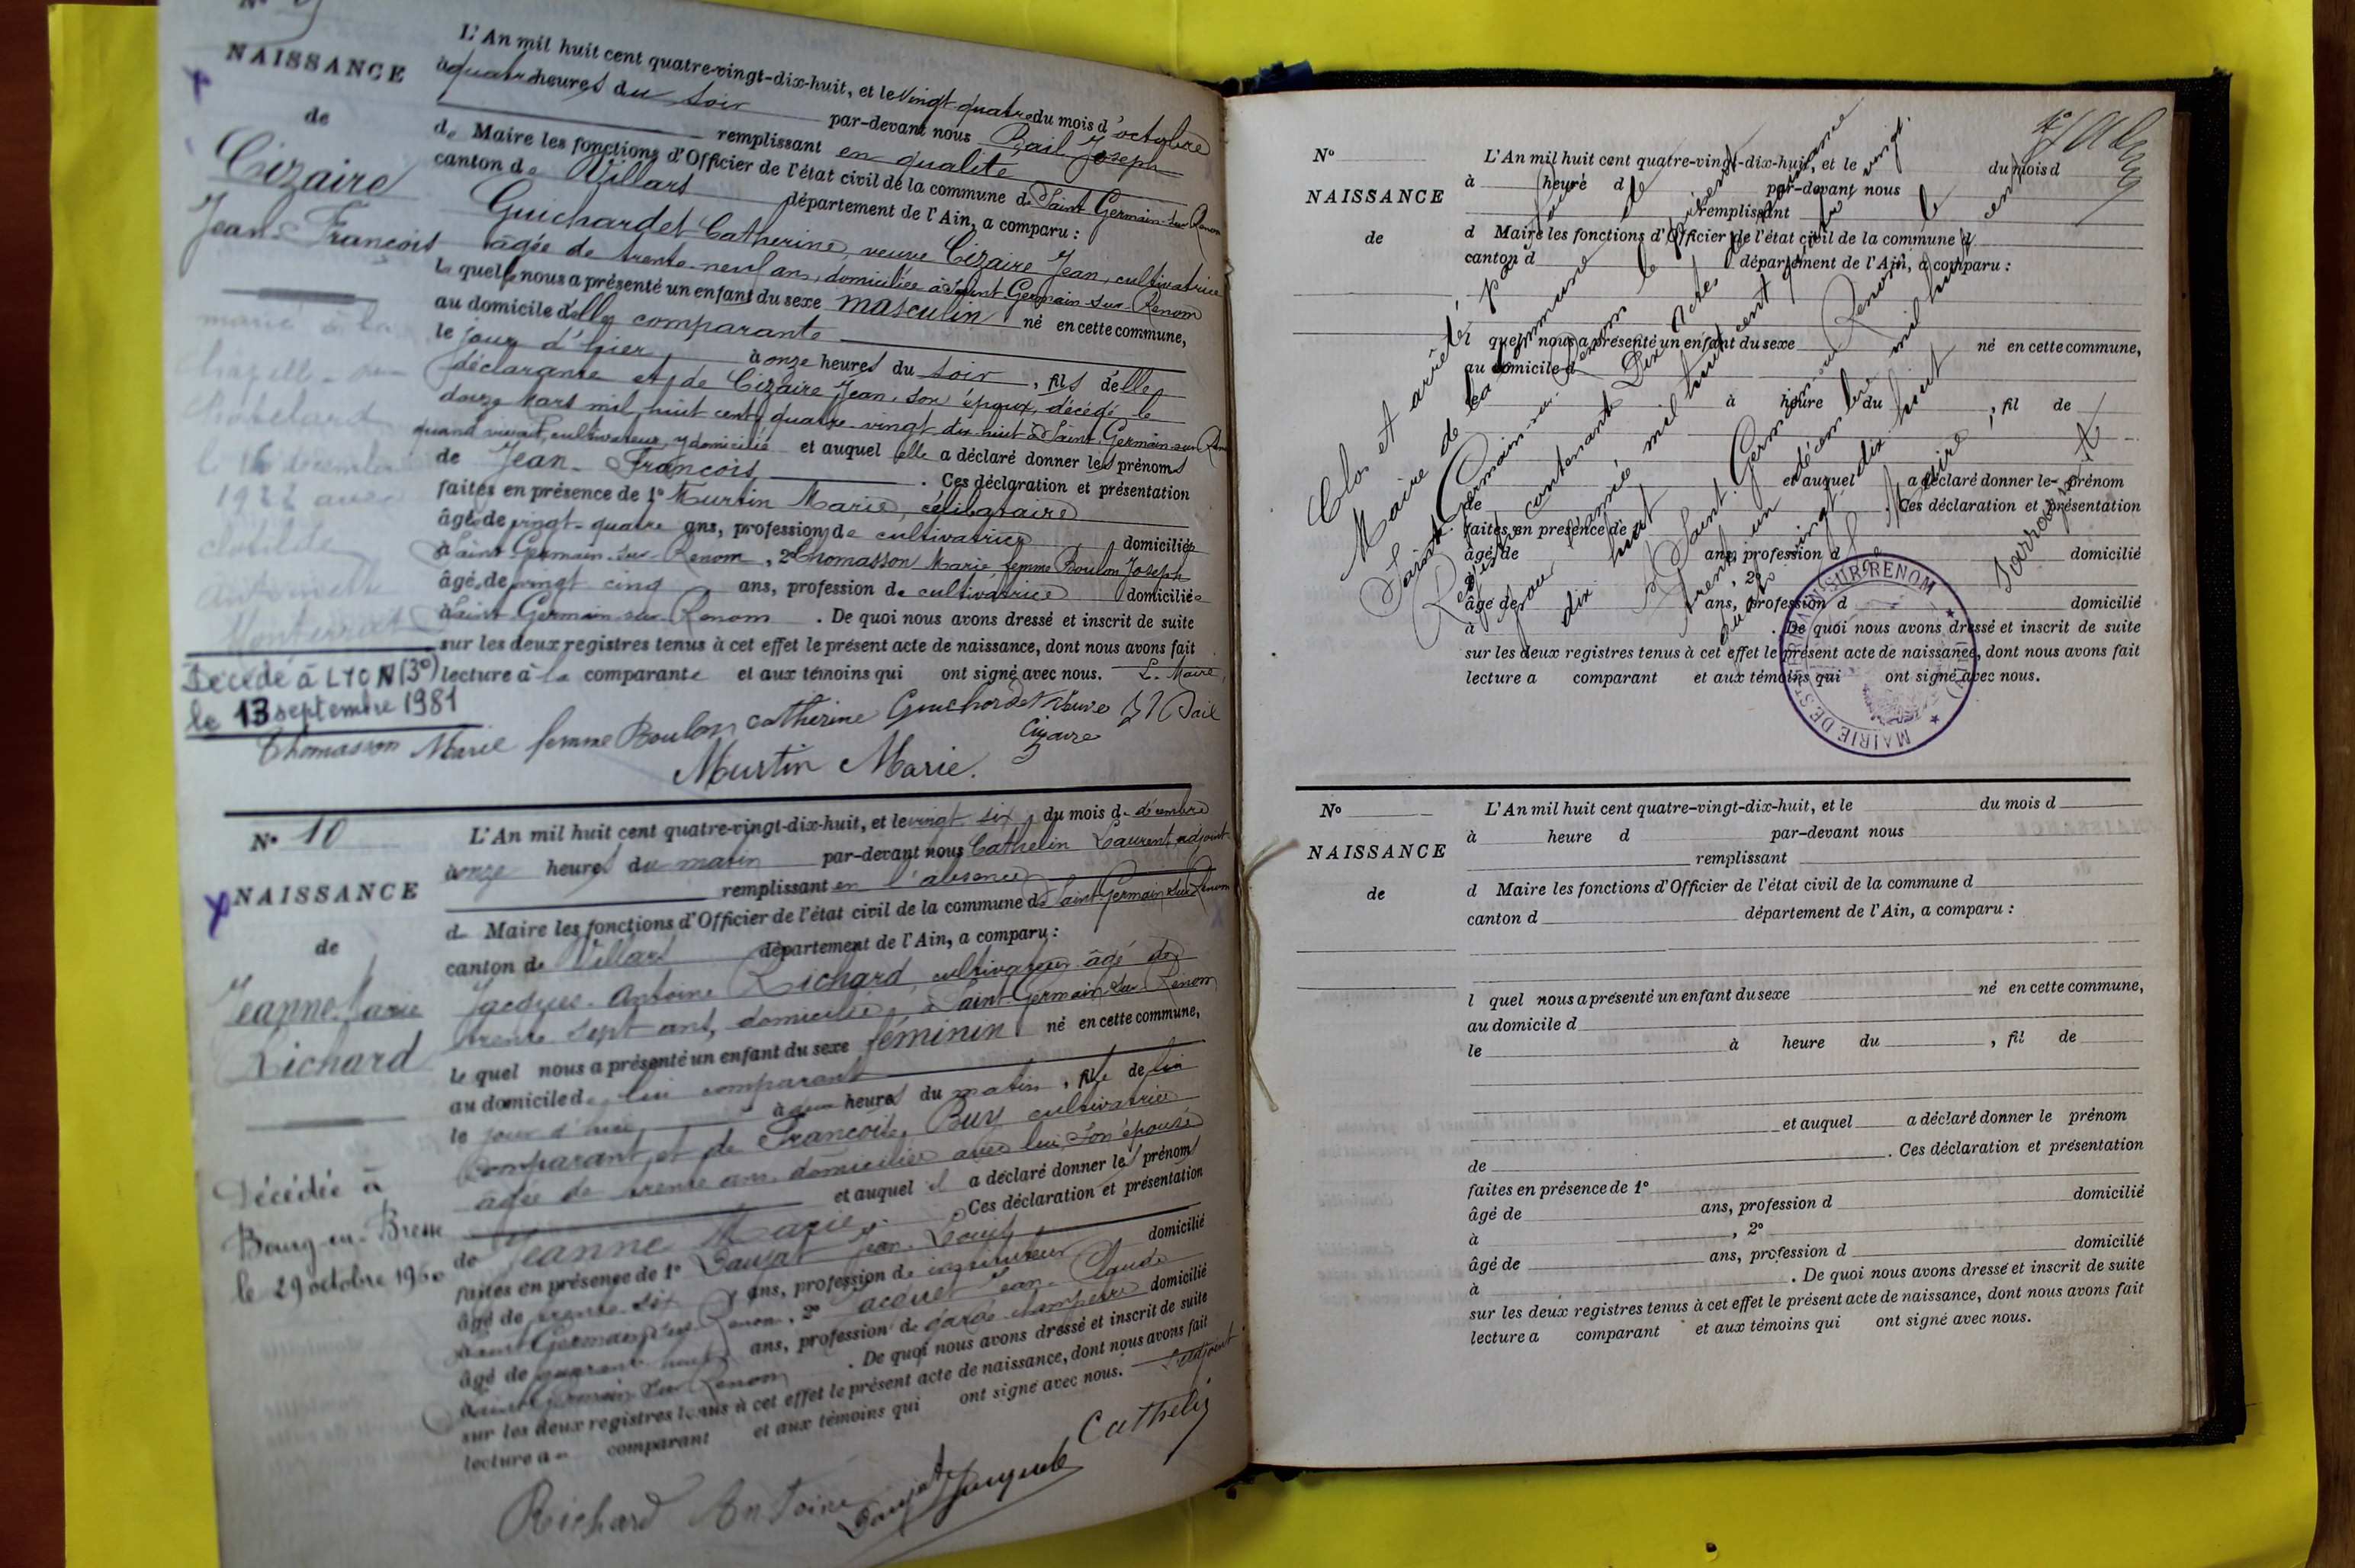 NAISSANCE
de
Cizaire
Jean-François
marié à la
le 16 décembre
1922 avec
Décédé à LYON (3e)
le 13 septembre 1981
L'An mil huit cent quatre-vingt-dix-huit, et le vingt quatre du mois d'octobre
à quatre heures du soir par-devant nous Bail Joseph
remplissant en qualité
de Maire les fonctions d'Officier de l'état civil de la commune de Saint Germain-sur-Renom
canton de Villars département de l'Ain, a comparu :
Guichardet Catherine, veuve Cizaire Jean, cultivatrice
âgée de trente-neuf ans, domiciliée à Saint Germain-sur-Renom
laquelle nous a présenté un enfant du sexe masculin né en cette commune,
au domicile d'elle comparante
le jour d'hier, à onze heures du soir, fils d'elle
déclarante et de Cizaire Jean, son époux, décédé le
douze Mars mil huit cent quatre-vingt-dix-huit à Saint-Germain-sur-Renom
quand vivait, cultivateur y domicilié et auquel elle a déclaré donner les prénoms
de Jean-François. Ces déclaration et présentation
faites en présence de 1° Murtin Marie, célibataire
âgé de vingt-quatre ans, profession de cultivatrice domiciliée
à Saint Germain-sur-Renom, 2° Thomasson Marie, femme Boulon Joseph
âgé de vingt cinq ans, profession de cultivatrice domiciliée
à Saint-Germain-sur-Renom. De quoi nous avons dressé et inscrit de suite
sur les deux registres tenus à cet effet le présent acte de naissance, dont nous avons fait
lecture à la comparante et aux témoins qui ont signé avec nous. Le Maire,
Thomasson Marie femme Boulon Catherine Guichardet Veuve Cizaire Bail
Murtin Marie.
N° 10
NAISSANCE
de
Jeanne Marie
Richard
Décédée à
Bourg-en-Bresse
le 29 octobre 1960
L'An mil huit cent quatre-vingt-dix-huit, et le vingt six du mois de décembre
à onze heures du matin par-devant nous Cathelin Laurent adjoint
remplissant en l'absence
du Maire les fonctions d'Officier de l'état civil de la commune de Saint-Germain-sur-Renom
canton de Villars département de l'Ain, a comparu :
Jacques-Antoine Richard, cultivateur âgé de
trente sept ans, domicilié à Saint-Germain-sur-Renom
lequel nous a présenté un enfant du sexe féminin né en cette commune,
au domicile de lui comparant
le jour d'hier, à deux heures du matin, fille de lui
comparant et de Françoise Buy cultivatrice
âgée de trente ans, domiciliée avec lui, son épouse
et auquel il a déclaré donner les prénoms
de Jeanne Marie. Ces déclaration et présentation
faites en présence de 1° Daujat Jean-Louis
âgé de trente six ans, profession de instituteur domicilié
à Saint Germain-sur-Renom, 2° Jacquet Jean-Claude
âgé de quarante neuf ans, profession de garde champêtre domicilié
à Saint Germain-sur-Renom. De quoi nous avons dressé et inscrit de suite
sur les deux registres tenus à cet effet le présent acte de naissance, dont nous avons fait
lecture au comparant et aux témoins qui ont signé avec nous. L'adjoint
Richard Antoine Daujat Jacquet Cathelin
N°
NAISSANCE
de
L'An mil huit cent quatre-vingt-dix-huit, et le du mois d
à heure d par-devant nous
remplissant
d Maire les fonctions d'Officier de l'état civil de la commune d
canton d département de l'Ain, a comparu :
l quel nous a présenté un enfant du sexe né en cette commune,
au domicile d
à heure du , fil de
et auquel a déclaré donner le prénom
de . Ces déclaration et présentation
faites en présence de
âgé de ans, profession d domicilié
, 2°
âgé de ans, profession d domicilié
à . De quoi nous avons dressé et inscrit de suite
sur les deux registres tenus à cet effet le présent acte de naissance, dont nous avons fait
lecture a comparant et aux témoins qui ont signé avec nous.
Clos et arrêté par
Maire de la commune de
Saint-Germain-sur-Renom le présent
Registre contenant Dix Actes
pour l'année mil huit cent quatre vingt
dix huit
A Saint-Germain-sur-Renom le
trente un décembre mil huit cent
quatre vingt dix huit
Le Maire
MAIRIE DE ST GERMAIN SUR RENOM
N°
NAISSANCE
de
L'An mil huit cent quatre-vingt-dix-huit, et le du mois d
à heure d par-devant nous
remplissant
d Maire les fonctions d'Officier de l'état civil de la commune d
canton d département de l'Ain, a comparu :
l quel nous a présenté un enfant du sexe né en cette commune,
au domicile d
le à heure du , fil de
et auquel a déclaré donner le prénom
de . Ces déclaration et présentation
faites en présence de 1°
âgé de ans, profession d domicilié
à , 2°
âgé de ans, profession d domicilié
à . De quoi nous avons dressé et inscrit de suite
sur les deux registres tenus à cet effet le présent acte de naissance, dont nous avons fait
lecture a comparant et aux témoins qui ont signé avec nous.